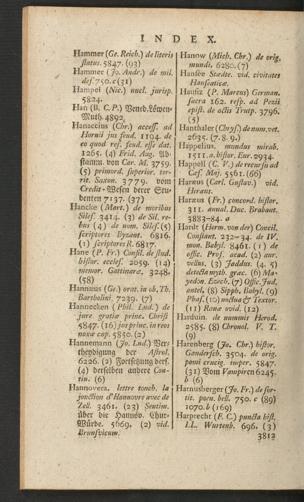 INDEX.
Hammer (Ge. Reich.) de literis
status. 5847. (93)
Hammer (Jo. Andr.) de mil.
des. 750. c (31)
Hampel (Nic.) nucl. jurisp.
5824.
Han (B. C. P.) Vened. Löwen-
Muth. 4892.
Hanaccius (Chr.) access. ad
Hornii jus feud. 1194. de
eo quod res. feud. esse dat.
1265. (4) Frid. Aug. Ab
stamm. von Car. M. 3759
(5) primord. superior. ter-
rit. Saxon. 3779. vom
Credit-Wesen derer Stu-
denten 7137. (37)
Hancke (Mart.) de moribus
Siles. 3414. (3) de Sil. re-
bus (4) de nom. Siles. (5)
scriptores Byzant. 6816.
(1) scriptores R. 6817.
Hane (P. Fr.) Consil. de stud.
histor. eccles. 2059. (14)
memor. Gattinaræ, 3248.
(58)
Hannæus (Ge.) orat. in ob. Th.
Bartholini. 7239. (7)
Hannecken (Phil. Lud.) de
jure gratiæ princ. Christi
5847. (16) jus princ. in reos
noxæ cap. 5850. (2)
Hannemann (Jo. Lud.) Ver-
theydigung der Astrol.
6226. (2) Fortsetzung derf.
(4) derselben andere Con-
tin. (6)
Hannovera. lettre touch. la
jonction d'Hannovre avec de
Zell. 3461. (23) Sentim.
über die Hannöv. Chur-
Würde. 5669. (2) vid.
Brunsvicum.
Hanow (Mich. Chr.) de orig.
mundi. 6280. (7)
Hansée Stædte. vid. civitates
Hanseaticæ.
Hansiz (P. Marcus) German.
sacra 162. resp. ad Pezii
epist. de actis Trudp. 3796.
(5)
Hanthaler (Chrys.) de num. vet.
2635. (7. 8. 9.)
Happelius. mundus mirab.
1511. a. histor. Eur. 2934.
Happell (C. F.) de recurs. ad
Cæs. Maj. 5561. (66)
Haræus (Carl Gustav.) vid.
Heræus.
Haræus (Fr.) concord. histor.
311. annal. Duc. Brabant.
3883-84.
Hardt (Herm. von der) Concil.
Constant. 232-34. de IV.
mon. Babyl. 8461. (1) de
offic. Prof. acad. (2) aur.
vellus. (3) Jaddus. (4. 5)
detecta myth. græc. (6) Ma-
gedon. Enoch. (7) Offic. Jud.
antel. (8) Sipph. Babyl. (9)
Phas. (10) noctua & Textor.
(11) Roma void. (12)
Harduin. de nummis Herod.
2585. (8) Chronol. V. T.
(9)
Harenberg (Jo. Chr.) histor.
Gandersh. 3504. de orig.
poni crucig. imper. 5847.
(31) Vom Vampiren 6245.
b (6)
Harnusberger (Jo. Fr.) de for-
tit. poen. bell. 750. c (89)
1070. b (169)
Harprecht (F. C.) puncta hist.
I.L. Wurtenb. 696. (3)
3812